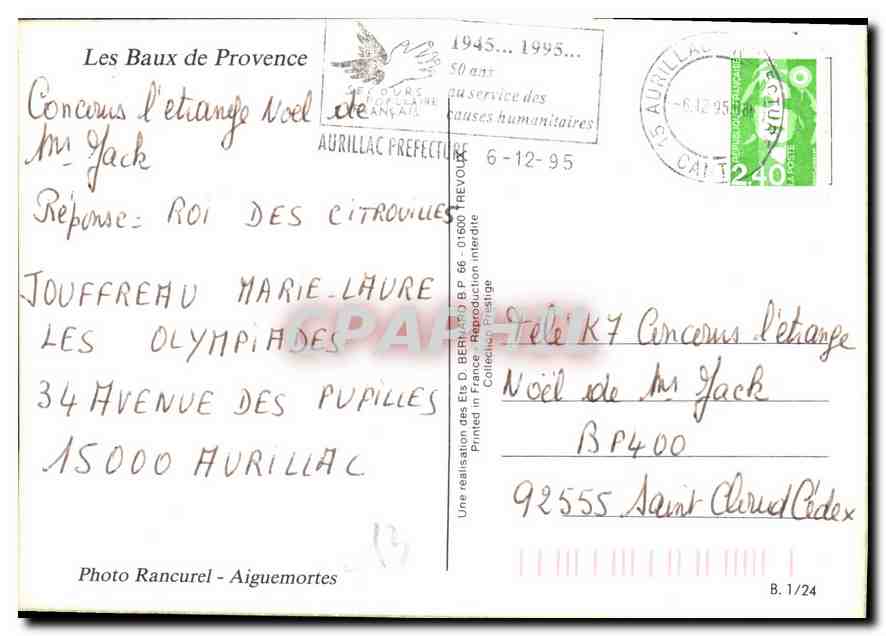 Les Baux de Provence
SECOURS
POPULAIRE
FRANÇAIS
1945... 1995...
50 ans
au service des
causes humanitaires
AURILLAC PREFECTURE 6-12-95
15 AURILLAC PREFECTURE
-6.12.95
CANTAL
REPUBLIQUE FRANÇAISE
2,40
LA POSTE
Concours l'etrange Noel de
Mr Jack
Réponse = ROI DES CITROUILLES
JOUFFREAU MARIE-LAURE
LES OLYMPIADES
34 AVENUE DES PUPILLES
15000 AURILLAC
CPAPHIL
Une réalisation des Ets D. BERNARD B.P. 66 - 01600 TREVOUX
Printed in France - Reproduction interdite
Collection Prestige
Télé K7 Concours l'étrange
Noël de Mr Jack
BP400
92555 Saint Cloud Cédex
Photo Rancurel - Aiguemortes
B. 1/24